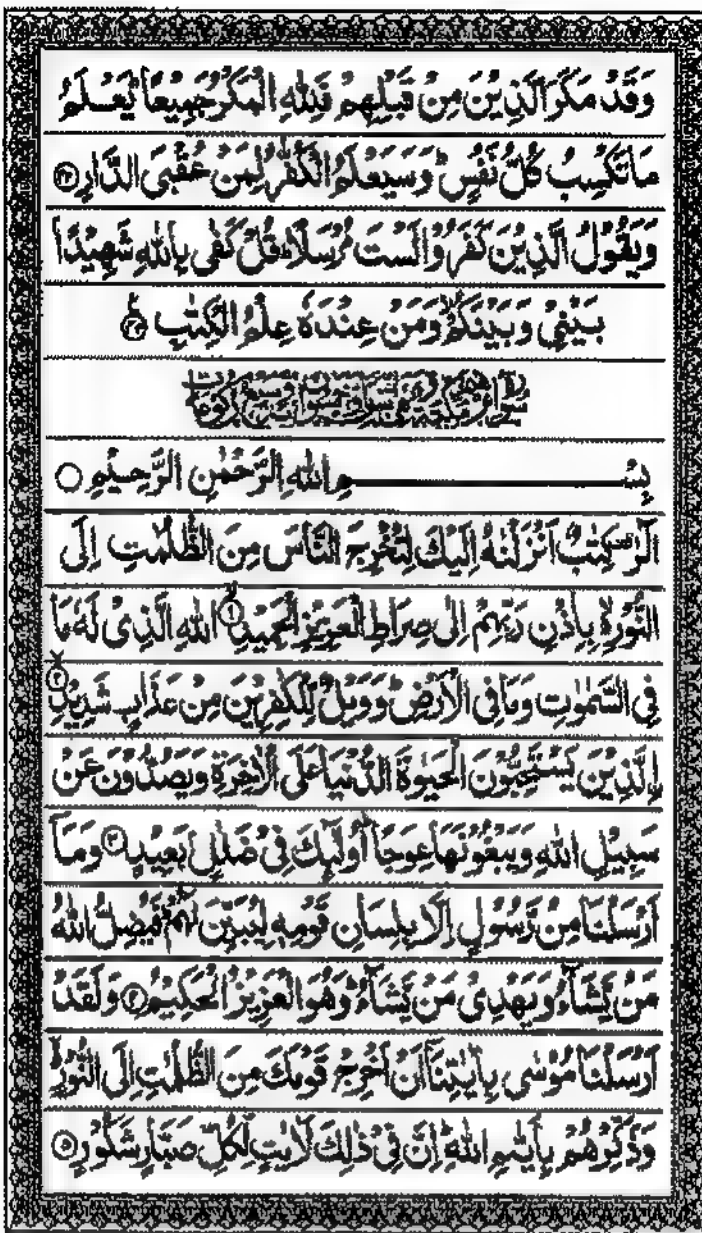 وَقَدْ مَكَرَ الَّذِيْنَ مِنْ قَبْلِهِمْ فَلِلّٰهِ الْمَكْرُ جَمِيْعًا ؕ يَعْلَمُ
مَا تَكْسِبُ كُلُّ نَفْسٍ ؕ وَسَيَعْلَمُ الْكُفّٰرُ لِمَنْ عُقْبَى الدَّارِ ۴۲
وَيَقُوْلُ الَّذِيْنَ كَفَرُوْا لَسْتَ مُرْسَلًا ؕ قُلْ كَفٰى بِاللّٰهِ شَهِيْدًۢا
بَيْنِيْ وَبَيْنَكُمْ ۙ وَمَنْ عِنْدَهٗ عِلْمُ الْكِتٰبِ ۴۳
بِسْمِ اللّٰهِ الرَّحْمٰنِ الرَّحِيْمِ
الٓرٰ ۫ كِتٰبٌ اَنْزَلْنٰهُ اِلَيْكَ لِتُخْرِجَ النَّاسَ مِنَ الظُّلُمٰتِ اِلَى
النُّوْرِ ۙ بِاِذْنِ رَبِّهِمْ اِلٰى صِرَاطِ الْعَزِيْزِ الْحَمِيْدِ ۙ ۱ اللّٰهِ الَّذِيْ لَهٗ مَا
فِي السَّمٰوٰتِ وَمَا فِي الْاَرْضِ ؕ وَوَيْلٌ لِّلْكٰفِرِيْنَ مِنْ عَذَابٍ شَدِيْدِ ۲
ِۨالَّذِيْنَ يَسْتَحِبُّوْنَ الْحَيٰوةَ الدُّنْيَا عَلَى الْاٰخِرَةِ وَيَصُدُّوْنَ عَنْ
سَبِيْلِ اللّٰهِ وَيَبْغُوْنَهَا عِوَجًا ؕ اُولٰٓئِكَ فِيْ ضَلٰلٍۭ بَعِيْدٍ ۳ وَمَآ
اَرْسَلْنَا مِنْ رَّسُوْلٍ اِلَّا بِلِسَانِ قَوْمِهٖ لِيُبَيِّنَ لَهُمْ ؕ فَيُضِلُّ اللّٰهُ
مَنْ يَّشَآءُ وَيَهْدِيْ مَنْ يَّشَآءُ ؕ وَهُوَ الْعَزِيْزُ الْحَكِيْمُ ۴ وَلَقَدْ
اَرْسَلْنَا مُوْسٰى بِاٰيٰتِنَآ اَنْ اَخْرِجْ قَوْمَكَ مِنَ الظُّلُمٰتِ اِلَى النُّوْرِ ۙ
وَذَكِّرْهُمْ بِاَيّٰىمِ اللّٰهِ ؕ اِنَّ فِيْ ذٰلِكَ لَاٰيٰتٍ لِّكُلِّ صَبَّارٍ شَكُوْرٍ ۵